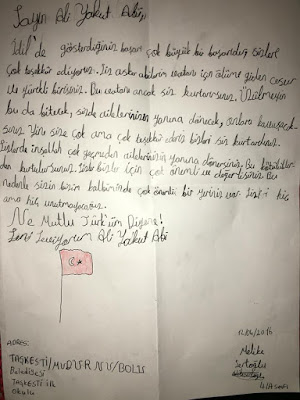 Sayın Ali Yakut Abi,
İdil'de gösterdiğiniz başarı çok büyük bir başarıdır sizlere
çok teşekkür ediyoruz. Siz askerabilerim vatanı için ölüme giden cesur
ve yürekli birisiniz. Bu vatanı ancak siz kurtarırsınız. Üzülmeyin
bu da bitecek, sizde ailelerinizin yanına dönücek, onlara kavuşacak-
sınız. Yine size çok ama çok teşekkür ederiz bizleri siz kurtardınız.
Sizlerde inşallah çok geçmeden ailelerinizin yanına dönersiniz. Bu kötülükler-
den kurtulursunuz. Sizler bizler için çok önemli ve değerlisiniz. Bu
nedenle sizin bizim kalbimizde çok önemli bir yeriniz var. Sizi hiç
ama hiç unutmayacağız.
Ne Mutlu Türk'üm Diyene!
Seni Seviyorum Ali Yakut Abi
ADRES:
TAŞKESTİ/MUDURNU/BOLU
Belediyesi
TAŞKESTİ İLK
Okulu
12/04/2016
Melike
Sertoğlu
4/A SINIFI